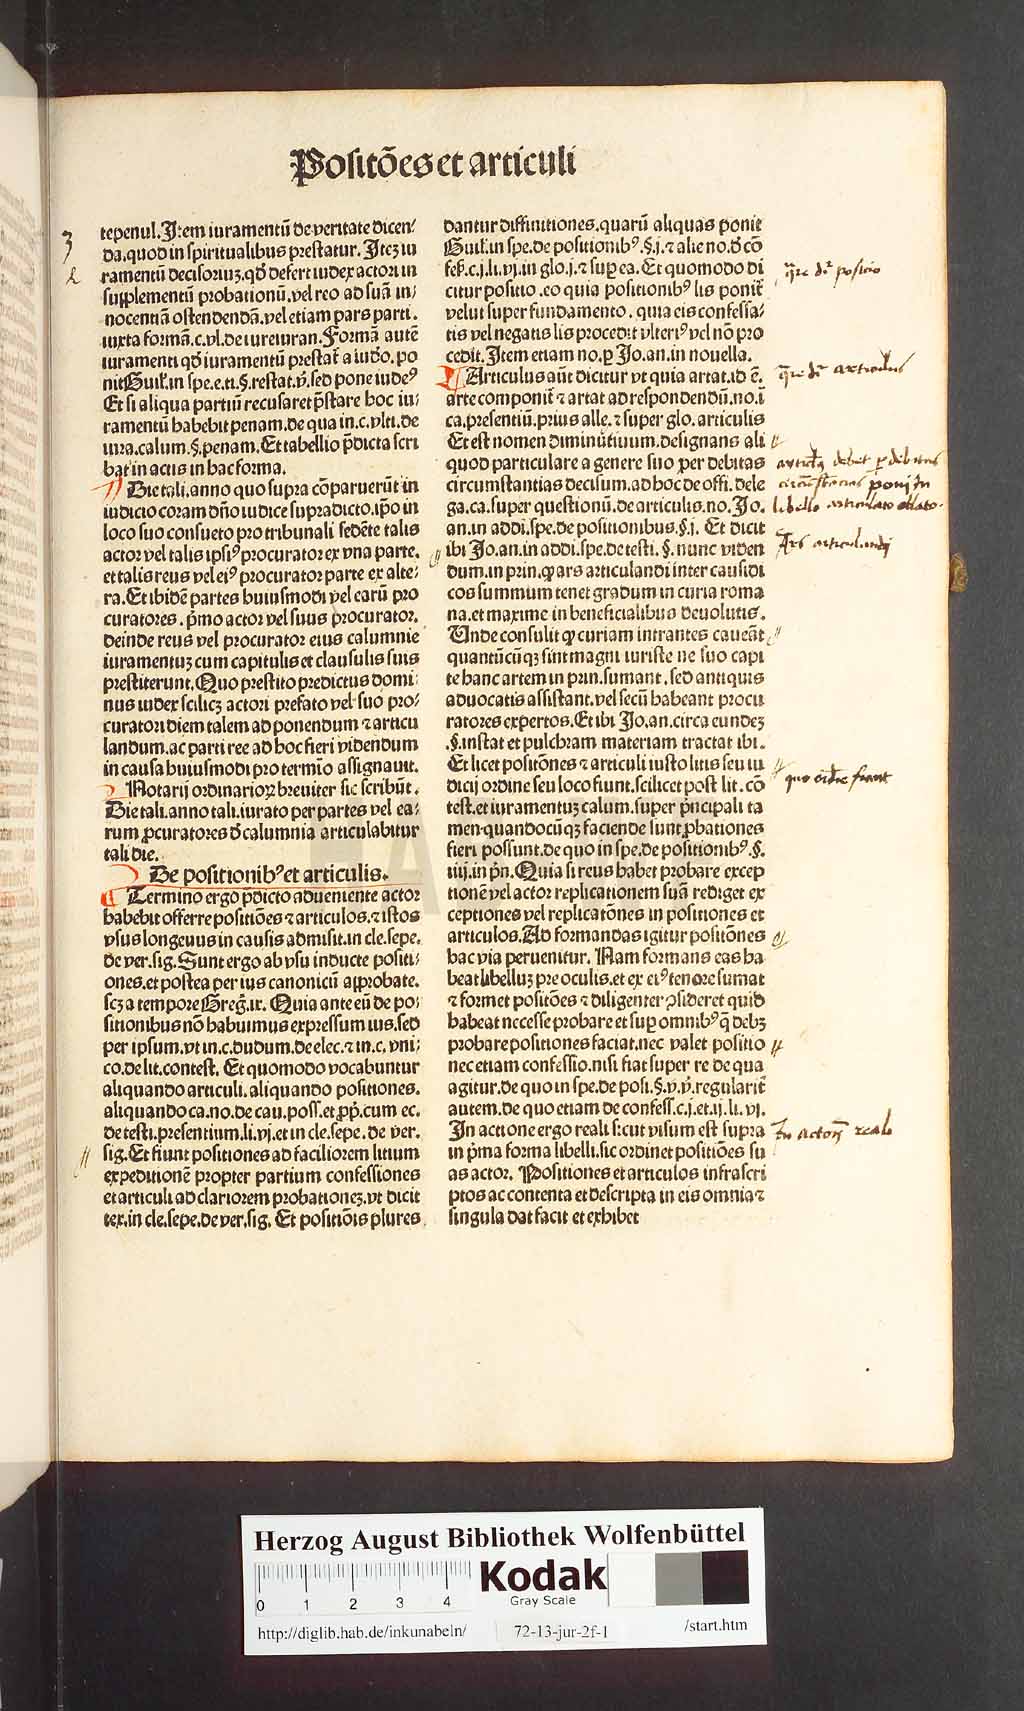 Positōes et articuli
tepenul. Item iuramentū de veritate dicen-
da. quod in spiritualibus prestatur. Itez iu
ramentū decisoriuz. qd̄ defert iudex actori in
supplementū probationū. vel reo ad suā in-
nocentiā ostendendā. vel etiam pars parti.
iuxta formā. c. vl. de iureiuran. Formā autē
iuramenti qd̄ iuramentū prestat̄ a iudō. po
nit Guil̄. in spe. e. ti. §. restat. v̄. sed pone iudeꝰ
Et si aliqua partiū recusaret p̄stare hoc iu-
ramentū habebit penam. de qua in. c. vlti. de
iura. calum. §. penam. Et tabellio p̄dicta scri
bat in actis in hac forma.
Die tali. anno quo supra cōparuerūt in
iudicio coram dn̄o iudice supradicto. ip̄o in
loco suo consueto pro tribunali sedēte talis
actor vel talis ipsiꝰ procurator ex vna parte.
et talis reus vel eiꝰ procurator parte ex alte-
ra. Et ibidē partes huiusmodi vel earū pro
curatores. p̄mo actor vel suus procurator.
deinde reus vel procurator eius calumnie
iuramentuz cum capitulis et clausulis suis
prestiterunt. Quo prestito predictus domi-
nus iudex scilicz actori prefato vel suo pro-
curatori diem talem ad ponendum ⁊ articu
landum. ac parti ree ad hoc fieri videndum
in causa huiusmodi pro termīo assignauit.
Notarij ordinarioꝝ breuiter sic scribūt.
Die tali. anno tali. iurato per partes vel ea-
rum ꝓcuratores d̄ calumnia articulabitur
tali die.
De positionibꝰ et articulis.
Termino ergo p̄dicto adueniente actor
habebit offerre positiōes ⁊ articulos. ⁊ istos
vsus longeuus in causis admisit. in cle. sepe.
de ver. sig. Sunt ergo ab vsu inducte positi-
ones. et postea per ius canonicū approbate.
scz a tempore Greḡ. ix. Quia ante eū de po-
sitionibus nō habuimus expressum ius. sed
per ipsum. vt in. c. dudum. de elec. ⁊ in. c. vni-
co. de lit. contest. Et quomodo vocabuntur
aliquando articuli. aliquando positiones.
aliquando ca. no. de cau. poss. et ꝓp̄. cum ec.
de testi. presentium. li. vj. et in cle. sepe. de ver.
sig. Et fiunt positiones ad faciliorem litium
expeditionē propter partium confessiones
et articuli ad clariorem probationez. vt dicit
tex. in cle. sepe. de ver. sig. Et positiōis plures
dantur diffinitiones. quarū aliquas ponit
Guil̄. in spe. de positionibꝰ. §. j. ⁊ alie no. d̄ cō
fes̄. c. j. li. vj. in glo. j. ⁊ suꝑ ea. Et quomodo di
citur positio. eo quia positionibꝰ lis ponit̄
velut super fundamento. quia eis confessa-
tis vel negatis lis procedit vlteriꝰ vel nō pro
cedit. Item etiam no. ꝑ Jo. an. in nouella.
Articulus aūt dicitur vt quia artat. id ē.
arte componit̄ ⁊ artat ad respondendū. no. ī
ca. presentiū. prius alle. ⁊ super glo. articulis
Et est nomen diminutiuum. designans ali
quod particulare a genere suo per debitas
circumstantias decisum. ad hoc de offi. dele
ga. ca. super questionū. de articulis. no. Jo.
an. in addi. spe. de positionibus. §. j. Et dicit
ibi Jo. an. in addi. spe. de testi. §. nunc viden
dum. in prin. ꝙ ars articulandi inter causidi
cos summum tenet gradum in curia roma
na. et maxime in beneficialibus deuolutis.
Unde consulit ꝙ curiam intrantes caueāt
quantūcūqz sint magni iuriste ne suo capi
te hanc artem in prin. sumant. sed antiquis
aduocatis assistant. vel secū habeant procu
ratores expertos. Et ibi Jo. an. circa eundez
.§. instat et pulchram materiam tractat ibi.
Et licet positōnes ⁊ articuli iusto litis seu iu
dicij ordine seu loco fiunt. scilicet post lit. cō
test. et iuramentuz calum. super p̄ncipali ta
men quandocūqz faciende sunt ꝓbationes
fieri possunt. de quo in spe. de positionibꝰ. §.
iiij. in p̄n. Quia si reus habet probare excep
tionē vel actor replicationem suā rediget ex
ceptiones vel replicatōnes in positiones et
articulos. Ad formandas igitur positōnes
hac via peruenitur. Nam formans eas ha
beat libelluz pre oculis. et ex eiꝰ tenore sumat
⁊ formet positōes ⁊ diligenter ꝯsideret quid
habeat necesse probare et suꝑ omnibꝰ q̄ debz
probare positiones faciat. nec valet positio
nec etiam confessio. nisi fiat super re de qua
agitur. de quo in spe. de posi. §. v. v̄. regularit̄
autem. de quo etiam de confess. c. j. et. ij. li. vj.
In actione ergo reali sicut visum est supra
in p̄ma forma libelli. sic ordinet positiōes su
as actor. Positiones et articulos infrascri
ptos ac contenta et descripta in eis omnia ⁊
singula dat facit et exhibet
q̄re dr̄ positio
q̄re dr̄ articulus
articlꝰ debet ꝑ debitas
circūstācias poni in
libello articulato
Ars articulandi
quo ordīe fiant
In actōe reali
Herzog August Bibliothek Wolfenbüttel
0 1 2 3 4
Kodak
Gray Scale
http://diglib.hab.de/inkunabeln/
72-13-jur-2f-1
/start.htm